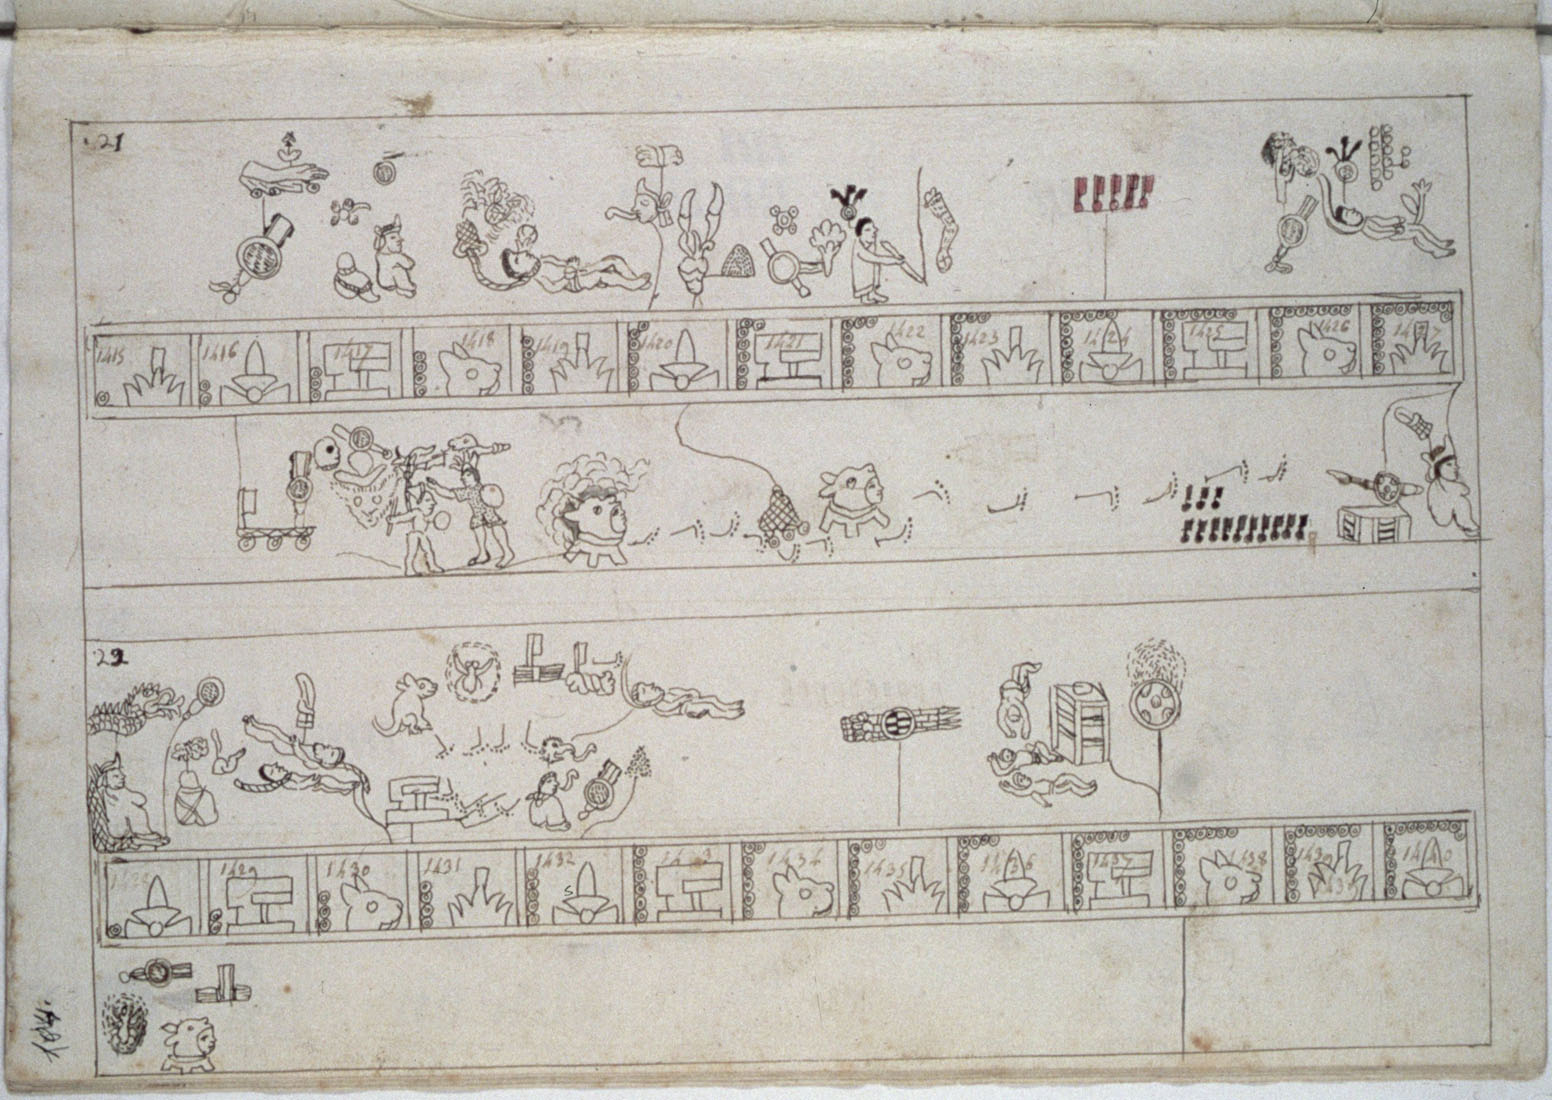 21
1415 1416 1417 1418 1419 1420 1421 1422 1423 1424 1425 1426 1427
1429 1430 1431 1432 1434 1435 1436 1437 1439 1440